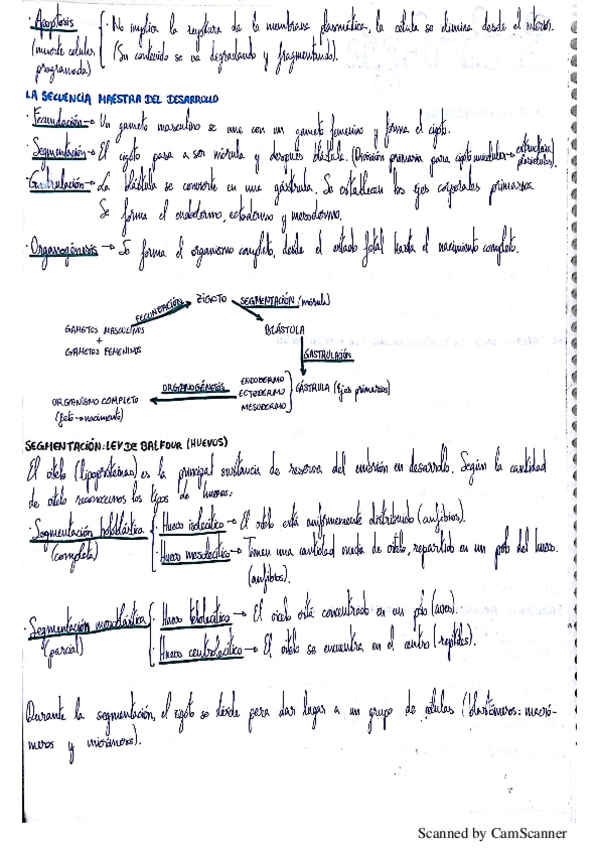 · Apoptosis · No implica la ruptura de la membrana plasmática, la célula se elimina desde el interior.
(muerte celular (Su contenido se va degradando y fragmentando).
programada)
LA SECUENCIA MAESTRA DEL DESARROLLO
· Fecundación → Un gameto masculino se une con un gameto femenino y forma el cigoto.
· Segmentación → El cigoto pasa a ser mórula y después blástula. (División primaria para cigoto → estructura
· Gastrulación → La blástula se convierte en una gástrula. Se establecen los ejes corporales primarios.
Se forma el endodermo, ectodermo y mesodermo.
· Organogénesis → Se forma el organismo completo, desde el estado fetal hasta el nacimiento completo.
FECUNDACIÓN ZIGOTO SEGMENTACIÓN (mórula)
GAMETOS MASCULINOS BLÁSTOLA
+
GAMETOS FEMENINOS GASTRULACIÓN
ORGANOGÉNESIS ENDODERMO
ORGANISMO COMPLETO ECTODERMO GÁSTRULA (Ejes primarios)
(feto → nacimiento) MESODERMO
SEGMENTACIÓN: LEY DE BALFOUR (HUEVOS)
El vitelo (lipoproteínas) es la principal sustancia de reserva del embrión en desarrollo. Según la cantidad
de vitelo reconocemos los tipos de huevos:
· Segmentación holoblástica · Huevo isolecítico → El vitelo está uniformemente distribuido (anfibios).
(completa) · Huevo mesolecítico → Tienen una cantidad de vitelo, repartido en un polo del huevo.
(anfibios).
· Segmentación meroblástica · Huevo telolecítico → El vitelo está concentrado en un polo (aves).
(parcial) · Huevo centrolecítico → El vitelo se encuentra en el centro (reptiles).
Durante la segmentación, el zigoto se divide para dar lugar a un grupo de células (blastómeros: macró-
meros y micrómeros).
Scanned by CamScanner